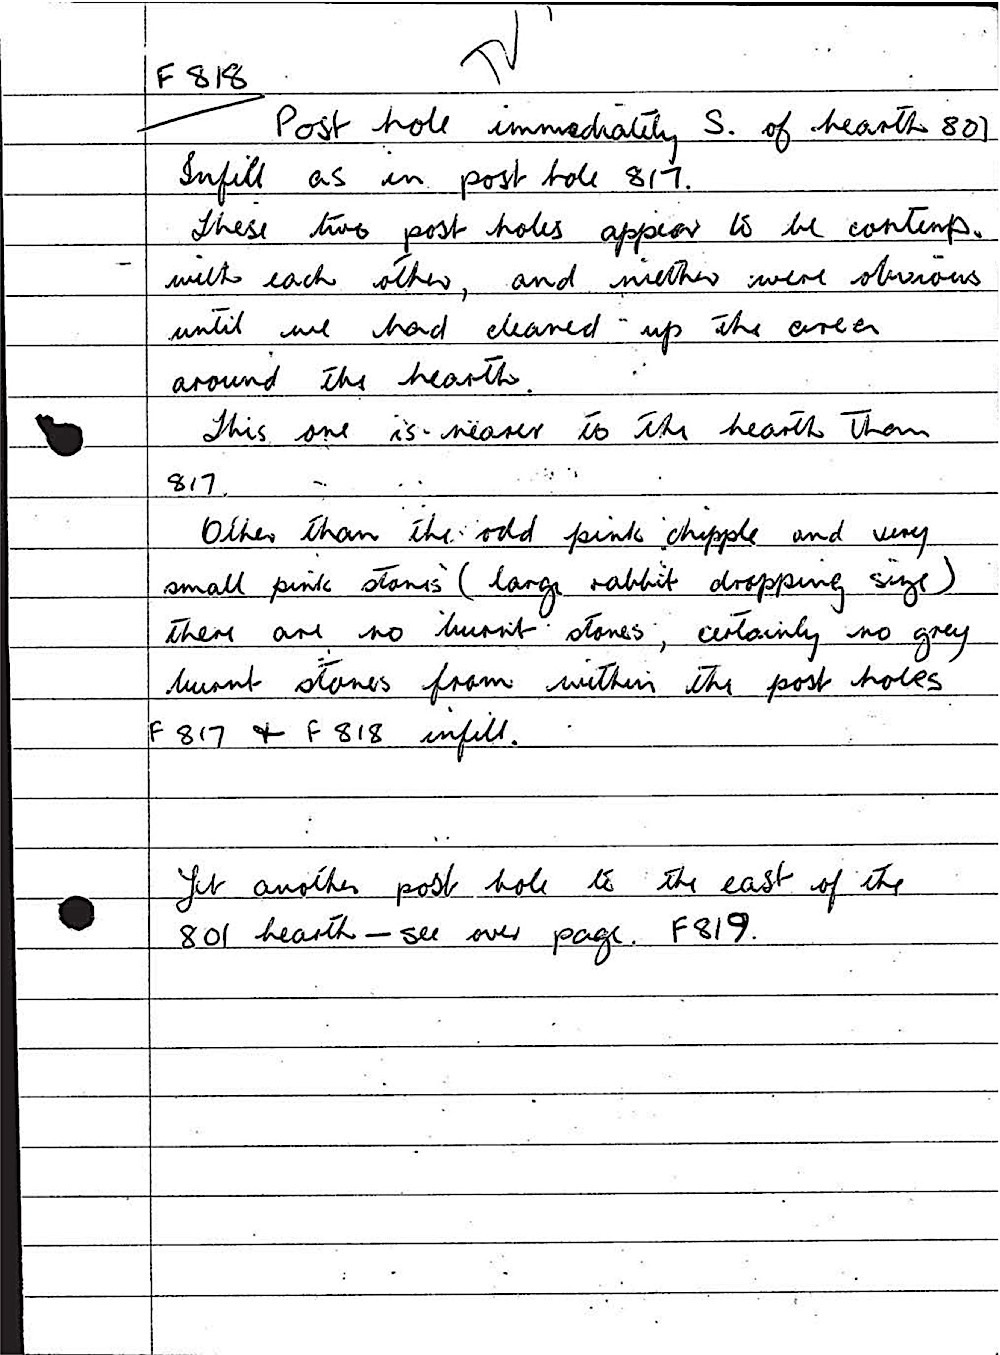 F 818
Post hole immediately S. of hearth 801
Infill as in post hole 817.
These two post holes appear to be contemp.
with each other, and niether were obvious
until we had cleaned up the area
around the hearth.
This one is nearer to the hearth than
817.
Other than the odd pink chipple and very
small pink stones (large rabbit dropping size)
there are no burnt stones, certainly no grey
burnt stones from within the post holes
F 817 & F 818 infill.
Yet another post hole to the east of the
801 hearth — see over page. F819.